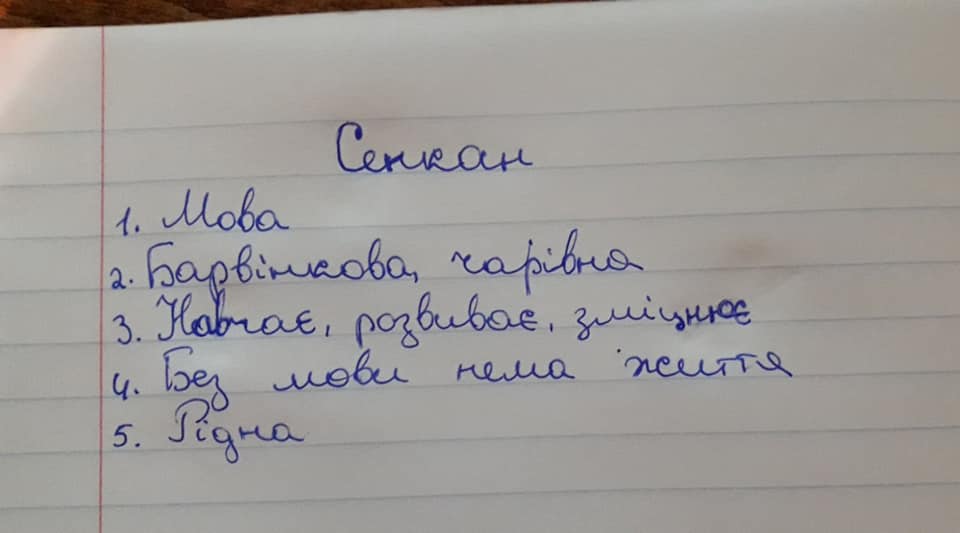 Сенкан
1. Мова
2. Барвінкова, чарівна
3. Навчає, розвиває, зміцнює
4. Без мови нема життя
5. Рідна